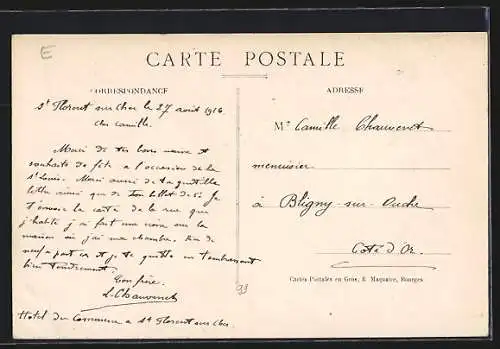 E
CARTE POSTALE
CORRESPONDANCE
St Florent sur Cher le 27 août 1916
Cher Camille
Merci de tes bons vœux et
souhaits de fête à l'occasion de la
St Louis. Merci aussi de ta gentille
lettre ainsi que de ton billet de 5f. Je
t'envoie la carte de la rue que
j'habite j'ai fait une croix sur la
maison où j'ai ma chambre. Rien de
neuf à part ça et je te quitte en t'embrassant
bien tendrement.
Ton frère
L. Chauvenet
Hotel du Commerce à St Florent sur Cher
ADRESSE
Mr Camille Chauvenet
menuisier
à Bligny-sur-Ouche
Cote d'Or
Cartes Postales en Gros, Maquaire, Bourges